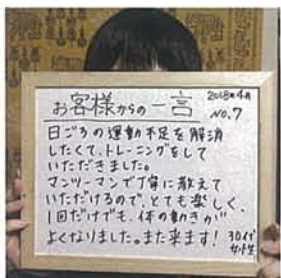 お客様からの一言 2018年4月
NO.7
日ごろの運動不足を解消
したくて、トレーニングをして
いただきました。
マンツーマンで丁寧に教えて
いただけるので、とても楽しく、
1回だけでも、体の動きが
よくなりました。また来ます! 30代
女性